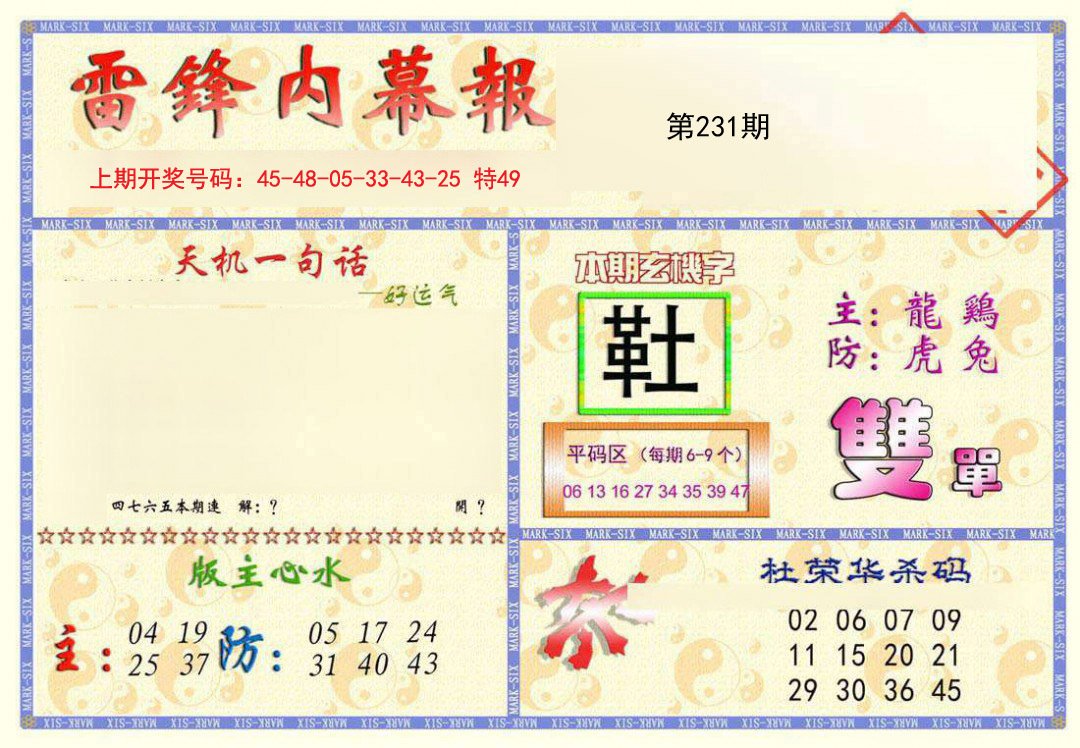 雷鋒内幕報
第231期
上期开奖号码：45-48-05-33-43-25 特49
天机一句话
—好运气
四七六五本期連 解：？ 開？
本期玄機字
靯
平码区（每期6-9个）
06 13 16 27 34 35 39 47
主：龍 鷄
防：虎 兔
雙 單
版主心水
主：04 19
25 37
防：05 17 24
31 40 43
杀
杜荣华杀码
02 06 07 09
11 15 20 21
29 30 36 45
MARK-SIX